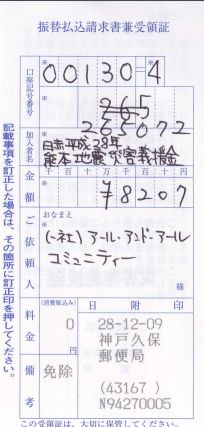 振替払込請求書兼受領証
口座記号番号
00130-4
265
265072
加入者名
日赤平成28年
熊本地震災害義援金
金額
千百十万千百十円
¥78207
ご依頼人
おなまえ
(一社)アール・アンド・アール
コミュニティー
様
料金
(消費税込み)
0
円
備考
免除
日附印
28-12-09
神戸久保
郵便局
(43167)
N94270005
記載事項を訂正した場合は、その箇所に訂正印を押してください。
この受領証は、大切に保管してください。